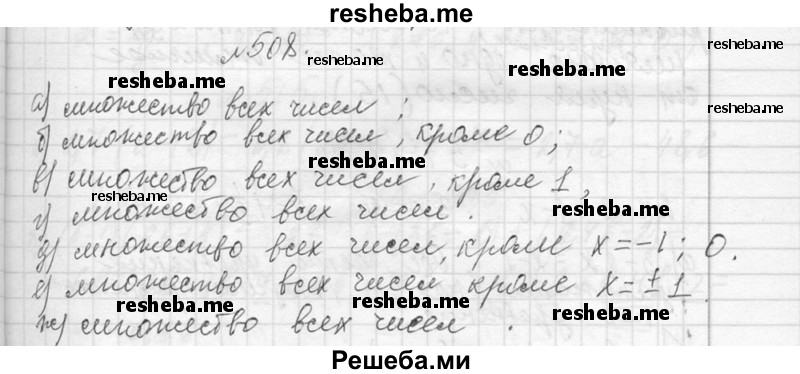 resheba.me
№508.
resheba.me
resheba.me
resheba.me
resheba.me
resheba.me
а) множество всех чисел ;
б) множество всех чисел, кроме 0 ;
resheba.me
в) множество всех чисел, кроме 1 ,
resheba.me
resheba.me
г) множество всех чисел .
д) множество всех чисел, кроме x = -1 ; 0.
е) множество всех чисел кроме x = ±1
resheba.me
resheba.me
resheba.me
ж) множество всех чисел .
Решеба.ми